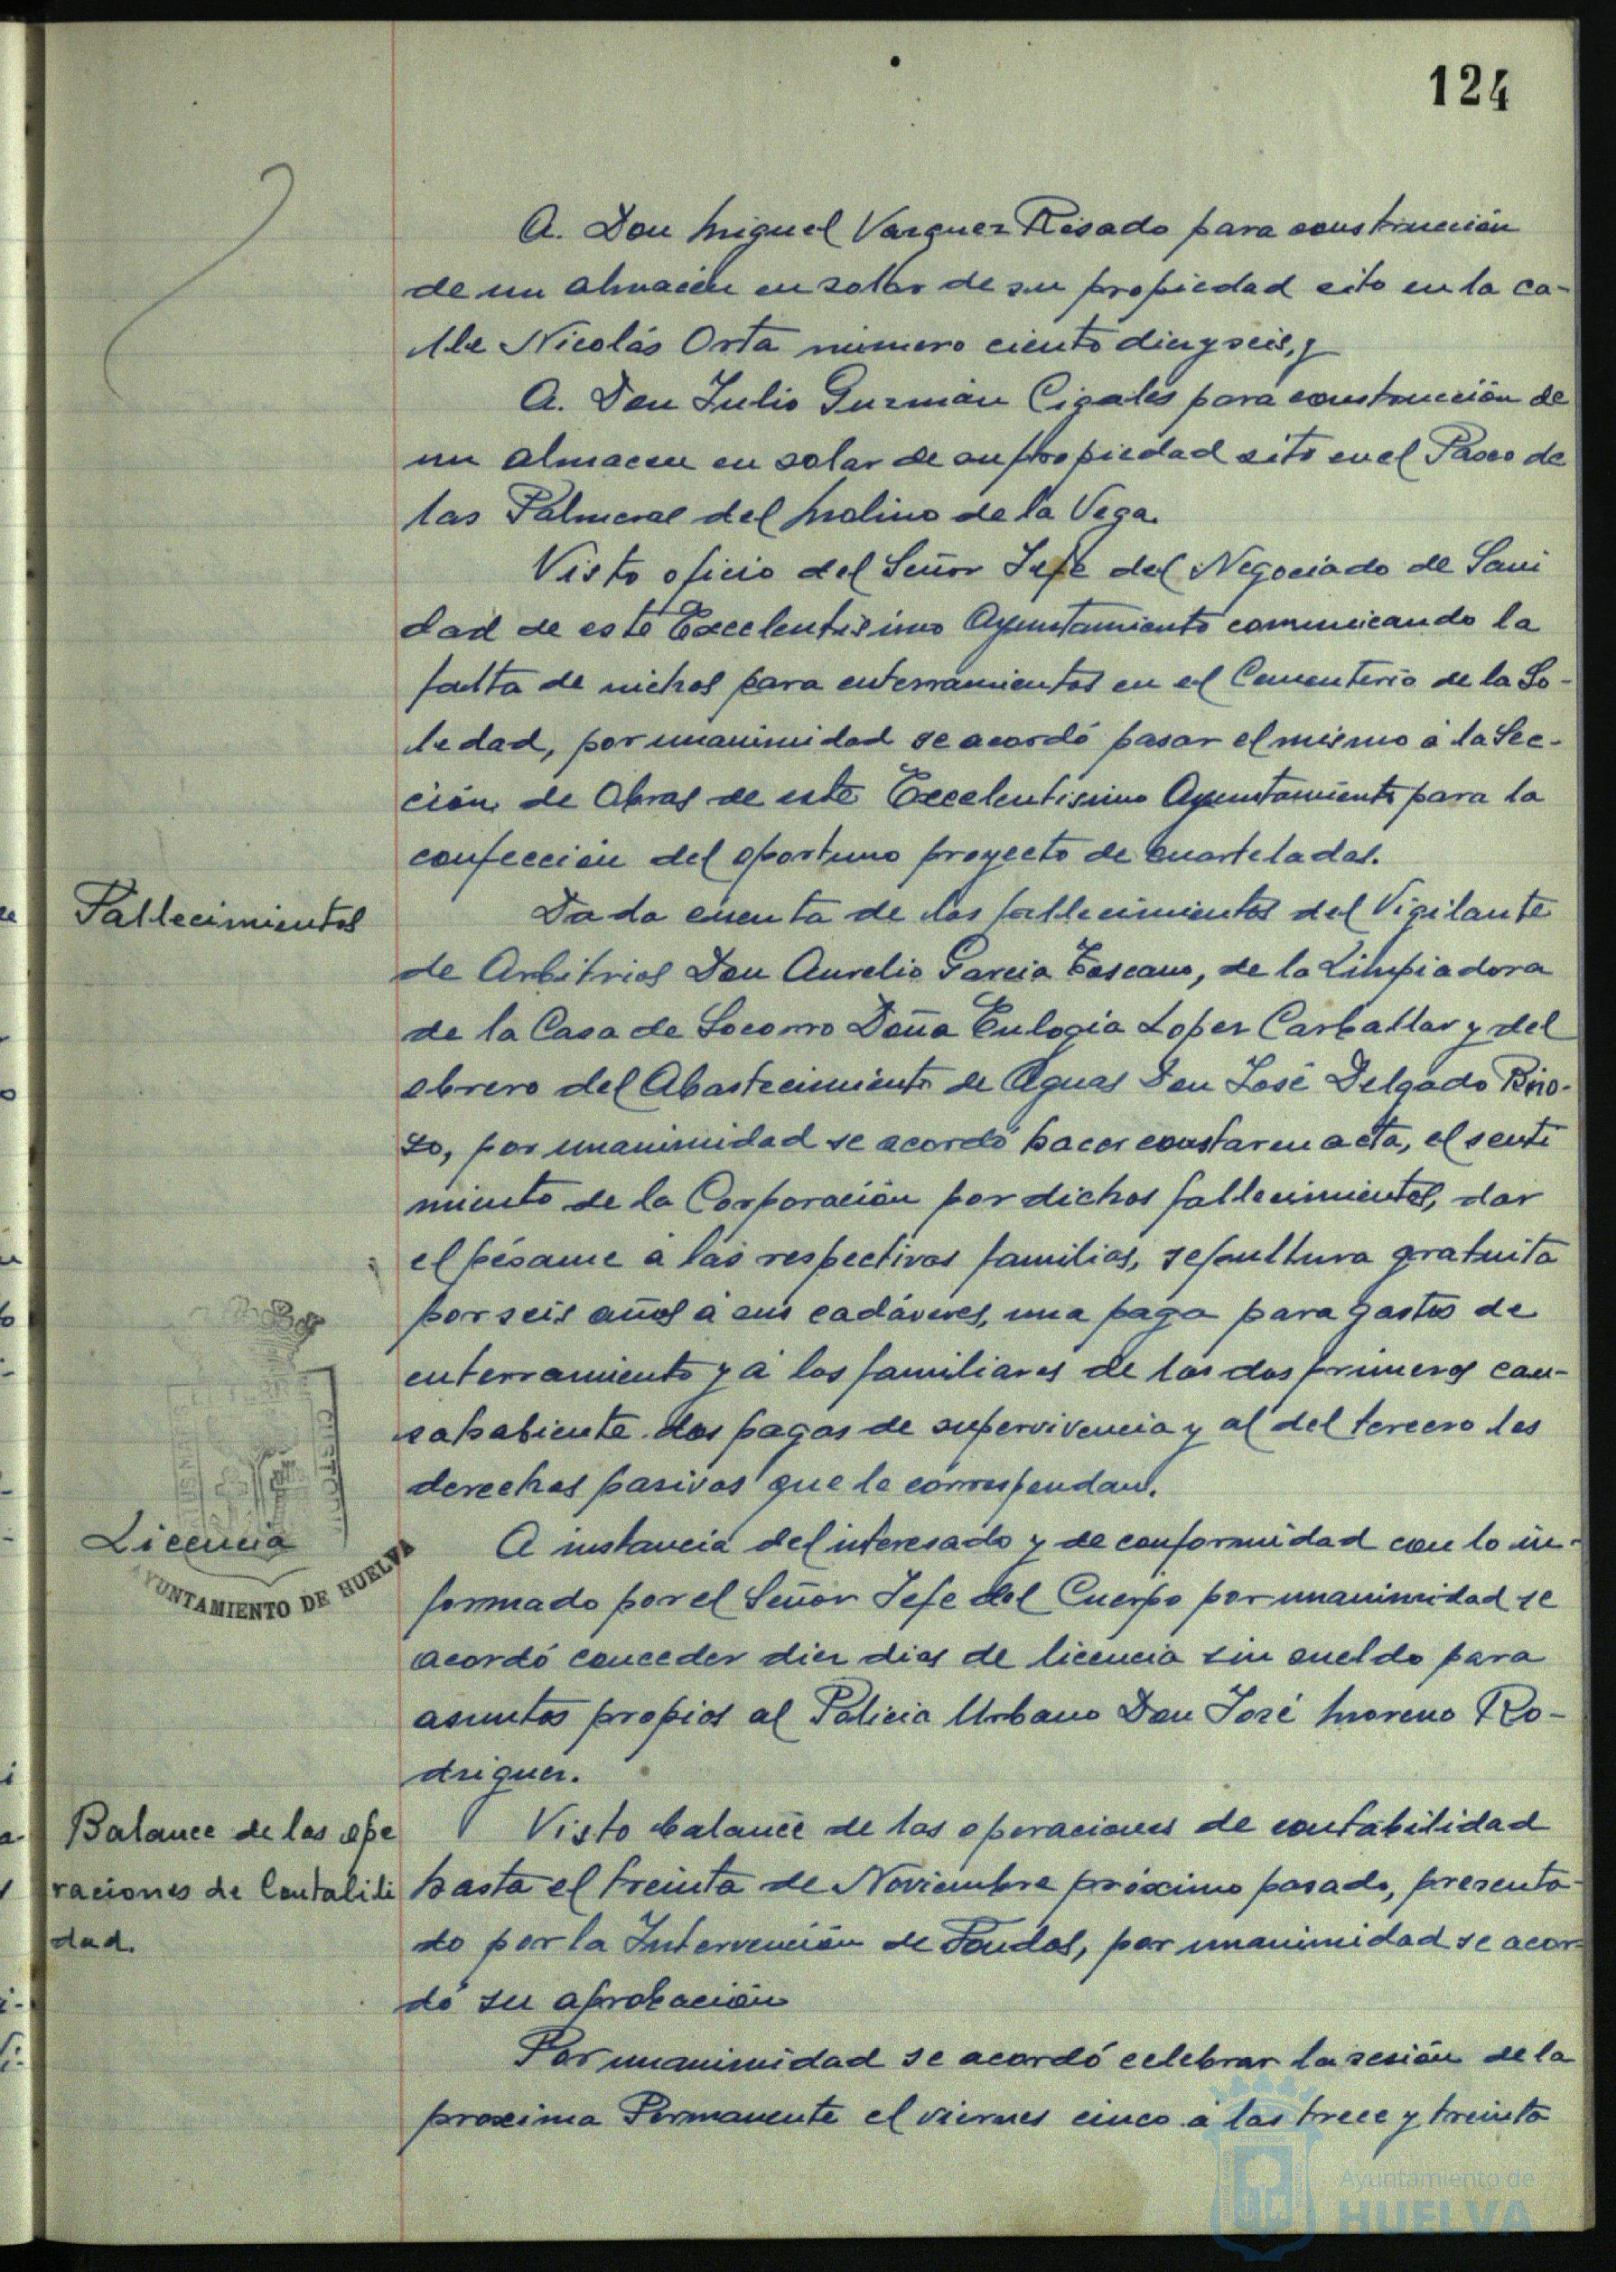 124
A. Don Miguel Vazquez Risado para construcción
de un almacén en solar de su propiedad sito en la ca-
lle Nicolás Orta número ciento diez y seis, y
A. Don Julio Guzmán Cigales para construcción de
un almacen en solar de su propiedad sito en el Paseo de
las Palmeras del Molino de la Vega.
Visto oficio del Señor Jefe del Negociado de Sani
dad de este Excelentisimo Ayuntamiento comunicando la
falta de nichos para enterramientos en el Cementerio de la So-
ledad, por unanimidad se acordó pasar el mismo á la Sec-
ción de Obras de este Excelentisimo Ayuntamiento para la
confección del oportuno proyecto de cuarteladas.
Fallecimientos
Dada cuenta de los fallecimientos del Vigilante
de Arbitrios Don Aurelio Garcia Toscano, de la Limpiadora
de la Casa de Socorro Doña Eulogia Lopez Carballar y del
obrero del Abastecimiento de Aguas Don José Delgado
so, por unanimidad se acordó hacer constar en acta, el senti
miento de la Corporación por dichos fallecimientos, dar
el pésame á las respectivas familias, sepultura gratuita
por seis años á sus cadáveres, una paga para gastos de
enterramiento y á los familiares de los dos primeros cau-
sahabiente dos pagas de supervivencia y al del tercero los
derechos pasivos que le correspondan.
Licencia
AYUNTAMIENTO DE HUELVA
A instancia del interesado y de conformidad con lo in-
formado por el Señor Jefe del Cuerpo por unanimidad se
acordó conceder diez dias de licencia sin sueldo para
asuntos propios al Policia Urbano Don José Moreno Ro-
driguez.
Balance de las ope
raciones de Contabili
dad.
Visto balance de las operaciones de contabilidad
hasta el treinta de Noviembre próximo pasado, presenta-
do por la Intervención de Fondos, por unanimidad se acor-
dó su aprobación
Por unanimidad se acordó celebrar la sesión de la
proxima Permanente el viernes cinco á las trece y treinta
Ayuntamiento de
HUELVA